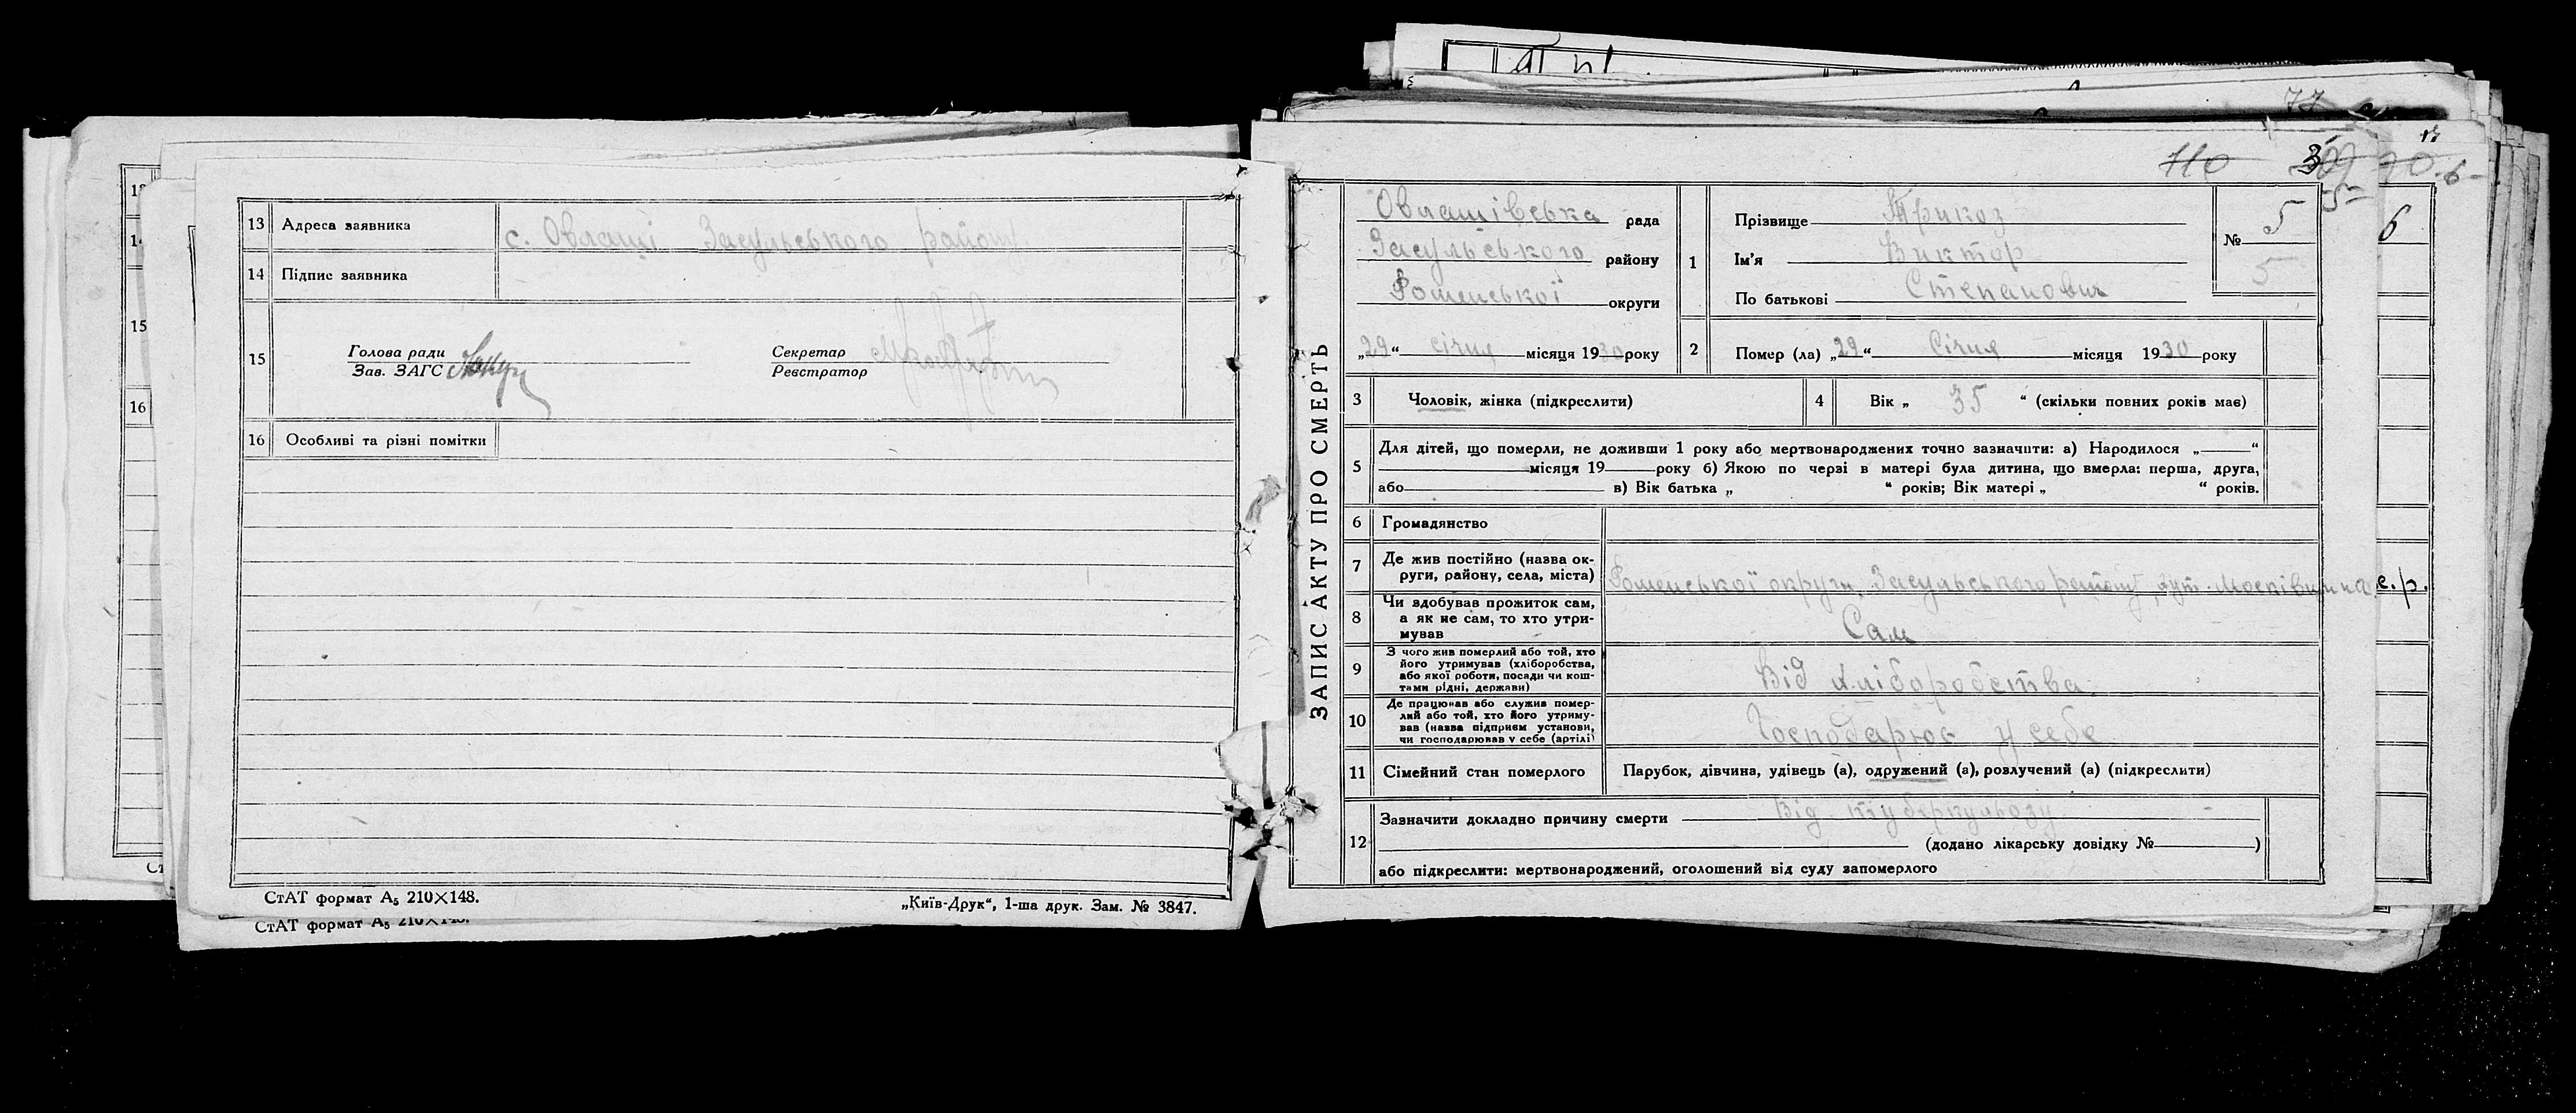 13 Адреса заявника с. Овлаші Засульського району
14 Підпис заявника
15
Голова ради
Зав. ЗАГС
Секретар
Реєстратор
16 Особливі та різні помітки
СтАТ формат А₅ 210×148.
„Київ-Друк“, 1-ша друк. Зам. № 3847.
СтАТ формат А₅ 210×148.
13
14
15
16
Ст
77
17
110
20
6
5
6
с.р.
ЗАПИС АКТУ ПРО СМЕРТЬ
Овлашівська рада
Засульського району
Роменської округи
„29“ січня місяця 1930 року
1 Прізвище Трикоз
Ім'я Виктор
По батькові Степанович
№ 5
5
2 Помер (ла) „29“ Січня місяця 1930 року
3 Чоловік, жінка (підкреслити)
4 Вік „ 35 “ (скільки повних років має)
5 Для дітей, що померли, не доживши 1 року або мертвонароджених точно зазначити: а) Народилося „ “
місяця 19 року б) Якою по черзі в матері була дитина, що вмерла: перша, друга,
або в) Вік батька „ “ років; Вік матері „ “ років.
6 Громадянство
7 Де жив постійно (назва ок-
руги, району, села, міста) Роменської округи, Засульського району, хут. Московщина
8 Чи здобував прожиток сам,
а як не сам, то хто утри-
мував Сам
9 З чого жив померлий або той, хто
його утримував (хліборобства,
або якої роботи, посади чи кош-
тами рідні, держави) Від хліборобства.
10 Де працював або служив помер-
лий або той, хто його утриму-
вав (назва підприєм установи,
чи господарював у себе (артілі) Господарює у себе
11 Сімейний стан померлого Парубок, дівчина, удівець (а), одружений (а), розлучений (а) (підкреслити)
12 Зазначити докладно причину смерти Від туберкульозу
(додано лікарську довідку № )
або підкреслити: мертвонароджений, оголошений від суду запомерлого